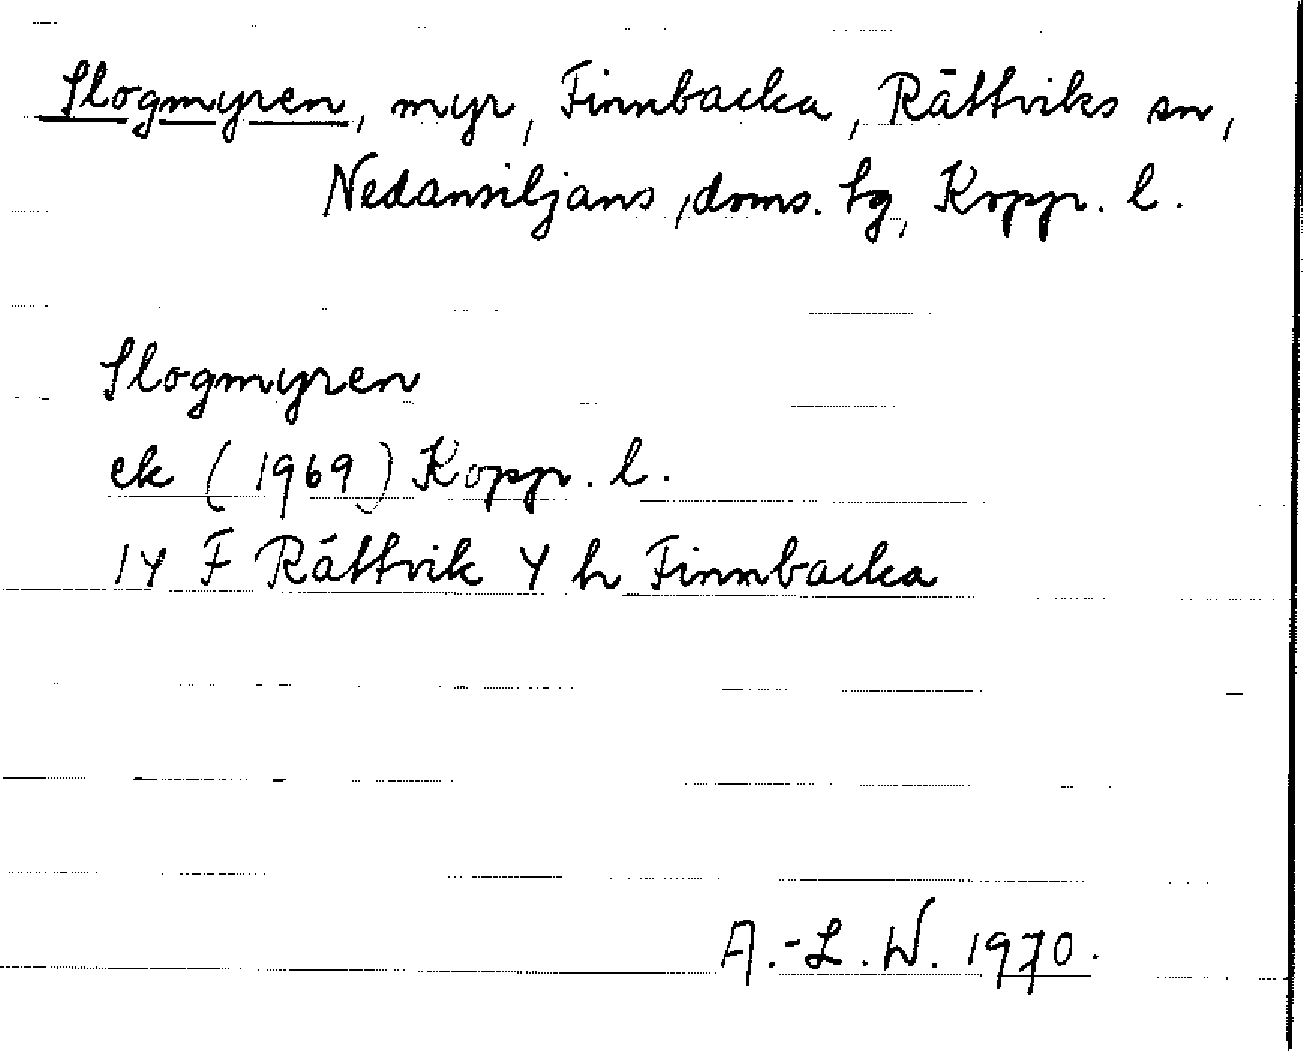 Slogmyren, myr, Finnbacka, Rättviks sn,
Nedansiljans, doms. hg, Kopp. l.
Slogmyren
ek (1969) Kopp. l.
14 F Rättvik 4 h Finnbacka
A.-L.W. 1970.